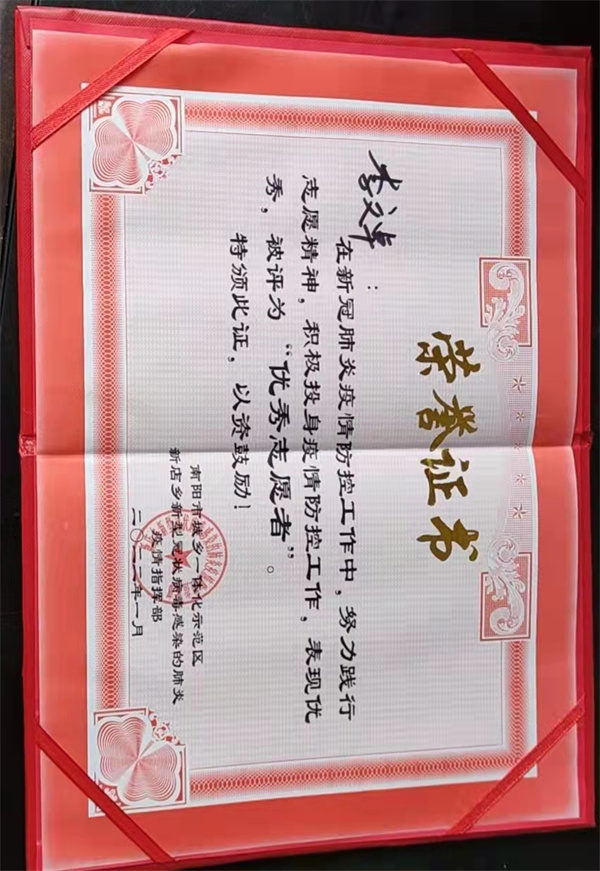 荣誉证书
李文卓：
在新冠肺炎疫情防控工作中，努力践行
志愿精神，积极投身疫情防控工作，表现优
秀，被评为“优秀志愿者”。
特颁此证，以资鼓励！
南阳市城乡一体化示范区
新店乡新型冠状病毒感染的肺炎
疫情指挥部
二〇二二年一月